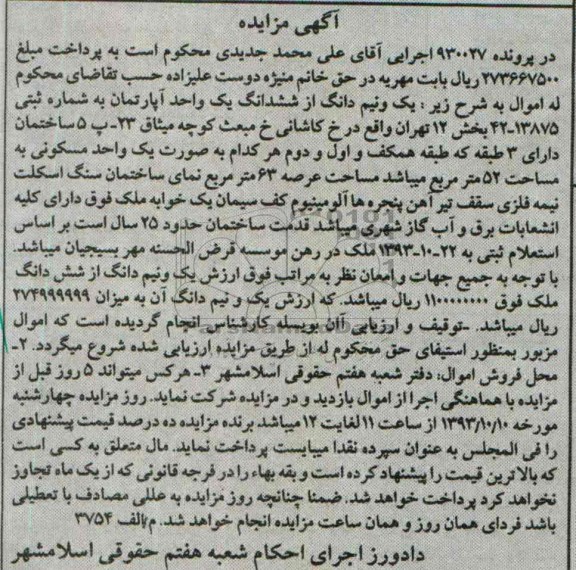 آگهی مزایده
در پرونده ۹۳۰۰۲۷ اجرایی آقای علی محمد جدیدی محکوم است به پرداخت مبلغ
۲۷۳۶۶۷۵۰۰ ریال بابت مهریه در حق خانم منیژه دوست علیزاده حسب تقاضای محکوم
له اموال به شرح زیر : یک ونیم دانگ از ششدانگ یک واحد آپارتمان به شماره ثبتی
۴۲-۱۳۸۷۵ بخش ۱۲ تهران واقع در خ کاشانی خ مبعث کوچه میثاق ۲۳- پ ۵ ساختمان
دارای ۳ طبقه که طبقه همکف و اول و دوم هر کدام به صورت یک واحد مسکونی به
مساحت ۵۲ متر مربع میباشد مساحت عرصه ۶۳ متر مربع نمای ساختمان سنگ اسکلت
نیمه فلزی سقف تیر آهن پنجره ها آلومینیوم کف سیمان یک خوابه ملک فوق دارای کلیه
انشعابات برق و آب گاز شهری میباشد قدمت ساختمان حدود ۲۵ سال است بر اساس
استعلام ثبتی به ۲۲-۱۰-۱۳۹۳ ملک در رهن موسسه قرض الحسنه مهر بسیجیان میباشد.
با توجه به جمیع جهات و امعان نظر به مراتب فوق ارزش یک ونیم دانگ از شش دانگ
ملک فوق ۱۱۰۰۰۰۰۰۰۰ ریال میباشد. که ارزش یک و نیم دانگ آن به میزان ۲۷۴۹۹۹۹۹۹
ریال میباشد. -توقیف و ارزیابی آان بوسیله کارشناس انجام گردیده است که اموال
مزبور بمنظور استیفای حق محکوم له از طریق مزایده ارزیابی شده شروع میگردد. ۲-
محل فروش اموال: دفتر شعبه هفتم حقوقی اسلامشهر ۳- هرکس میتواند ۵ روز قبل از
مزایده با هماهنگی اجرا از اموال بازدید و در مزایده شرکت نماید. روز مزایده چهارشنبه
مورخه ۱۳۹۳/۱۰/۱۰ از ساعت ۱۱ لغایت ۱۲ میباشد برنده مزایده ده درصد قیمت پیشنهادی
را فی المجلس به عنوان سپرده نقدا میبایست پرداخت نماید. مال متعلق به کسی است
که بالاترین قیمت را پیشنهاد کرده است و بقه بهاء را در فرجه قانونی که از یک ماه تجاوز
نخواهد کرد پرداخت خواهد شد. ضمنا چنانچه روز مزایده به عللی مصادف با تعطیلی
باشد فردای همان روز و همان ساعت مزایده انجام خواهد شد. م/الف ۳۷۵۴
دادورز اجرای احکام شعبه هفتم حقوقی اسلامشهر